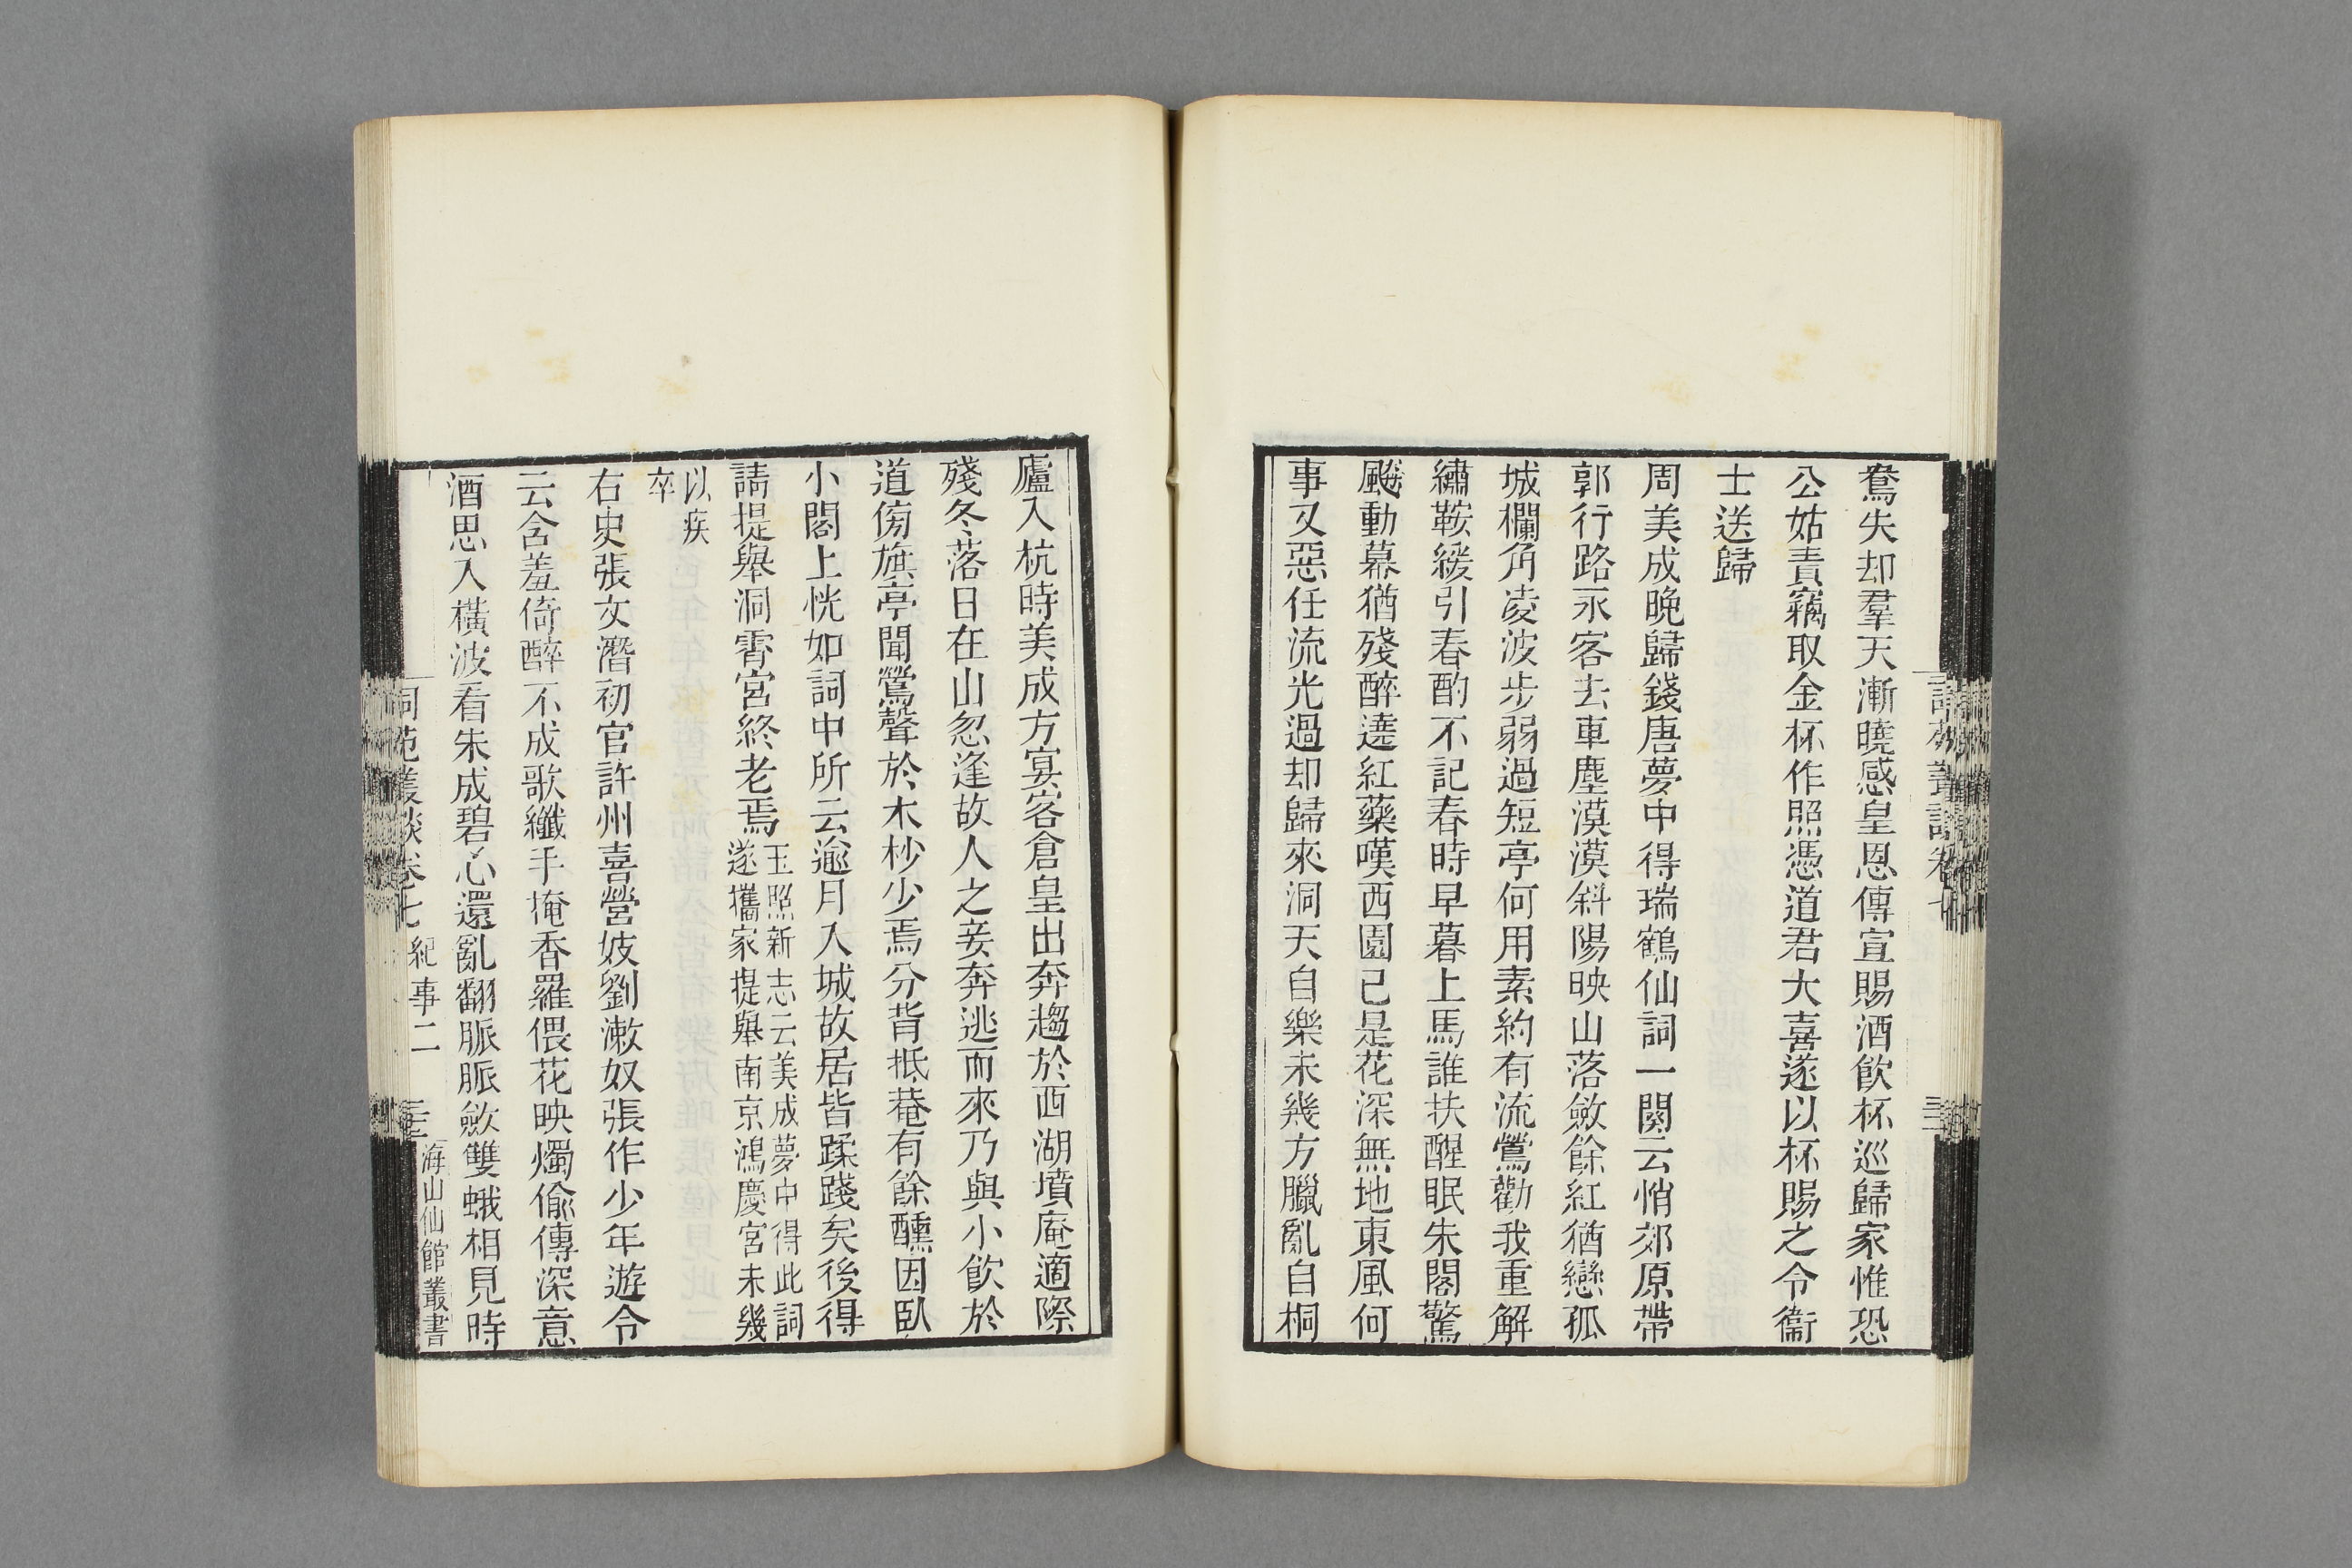 鴦失却羣天漸曉感皇恩傳宣賜酒飲杯巡歸家惟恐
公姑責竊取金杯作照憑道君大喜遂以杯賜之令衞
士送歸
周美成晚歸錢唐夢中得瑞鶴仙詞一闋云悄郊原帶
郭行路永客去車塵漠漠斜陽映山落斂餘紅猶戀孤
城欄角凌波步弱過短亭何用素約有流鶯勸我重解
繡鞍緩引春酌不記春時早暮上馬誰扶醒眠朱閣驚
飈動幕猶殘醉遶紅藥嘆西園已是花深無地東風何
事又惡任流光過却歸來洞天自樂未幾方臘亂自桐
廬入杭時美成方宴客倉皇出奔趨於西湖墳庵適際
殘冬落日在山忽逢故人之妾奔逃而來乃與小飲於
道傍旗亭聞鶯聲於木杪少焉分背抵菴有餘醺因臥
小閣上恍如詞中所云逾月入城故居皆蹂踐矣後得
請提舉洞霄宮終老焉玉照新志云美成夢中得此詞
遂攜家提舉南京鴻慶宮未幾
以疾
卒
右史張文潛初官許州喜營妓劉潄奴張作少年遊令
云含羞倚醉不成歌纖手掩香羅偎花映燭偸傳深意
酒思入橫波看朱成碧心還亂翻脈脈斂雙蛾相見時
詞苑叢談卷七 紀事二 海山仙館叢書